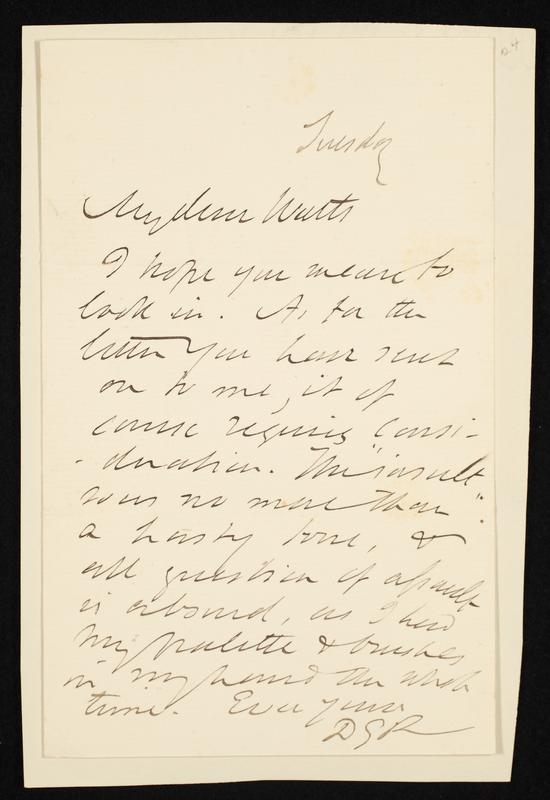 Tuesday
My dear Watts
I hope you mean to
look in. As for the
letter you have sent
on to me, it of
course requires consi-
-deration. The "insult"
was no more than
a hasty tone, &
all question of assault
is absurd, as I had
my palette & brushes
in my hand the whole
time. Ever yours
DGR